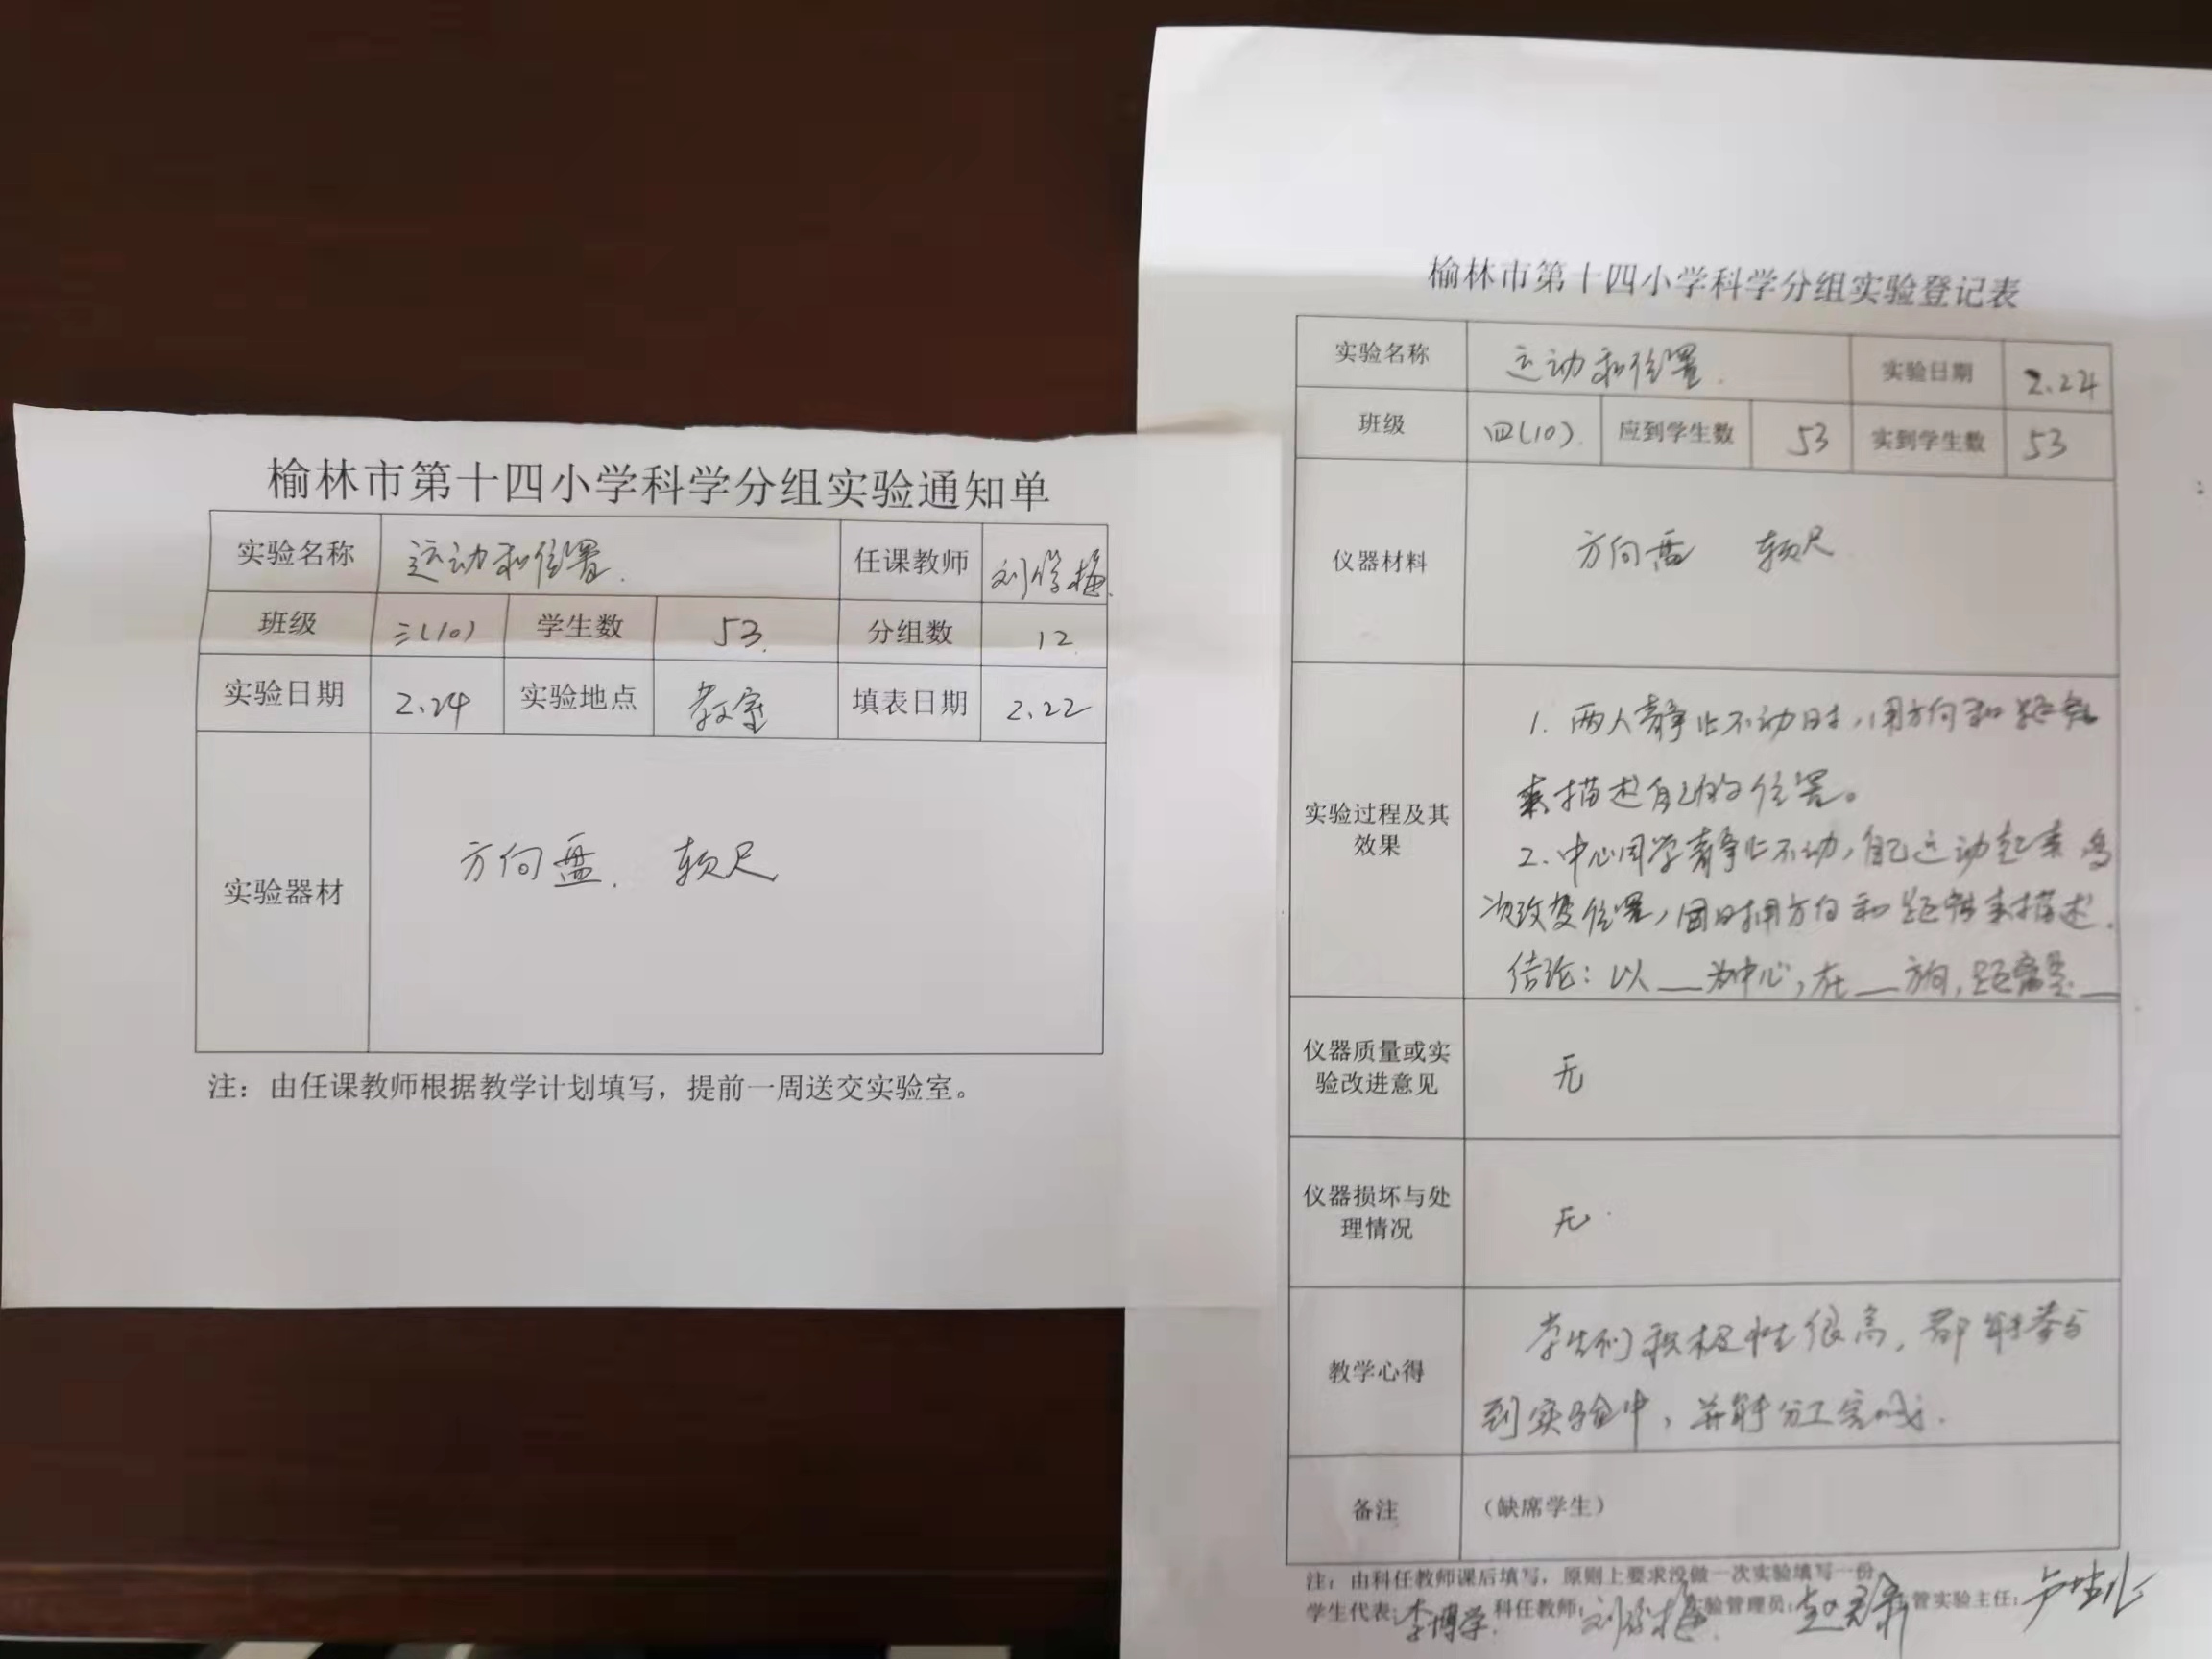 榆林市第十四小学科学分组实验通知单
实验名称 运动和位置. 任课教师 刘学梅
班级 三(10) 学生数 53 分组数 12
实验日期 2.24 实验地点 教室 填表日期 2.22
实验器材 方向盘. 软尺
注：由任课教师根据教学计划填写，提前一周送交实验室。
榆林市第十四小学科学分组实验登记表
实验名称 运动和位置. 实验日期 2.24
班级 四(10) 应到学生数 53 实到学生数 53
仪器材料 方向盘 软尺
实验过程及其
效果
1. 两人静止不动时，用方向和距离
来描述自己的位置。
2. 中心同学静止不动，自己运动起来多
次改变位置，同时用方向和距离来描述.
结论：以__为中心，在__方向，距离是__
仪器质量或实
验改进意见
无
仪器损坏与处
理情况
无
教学心得
学生们积极性很高，都能参与
到实验中，并能分工完成.
备注 （缺席学生）
注：由科任教师课后填写，原则上要求没做一次实验填写一份
学生代表：李博学. 科任教师： 实验管理员： 管实验主任：